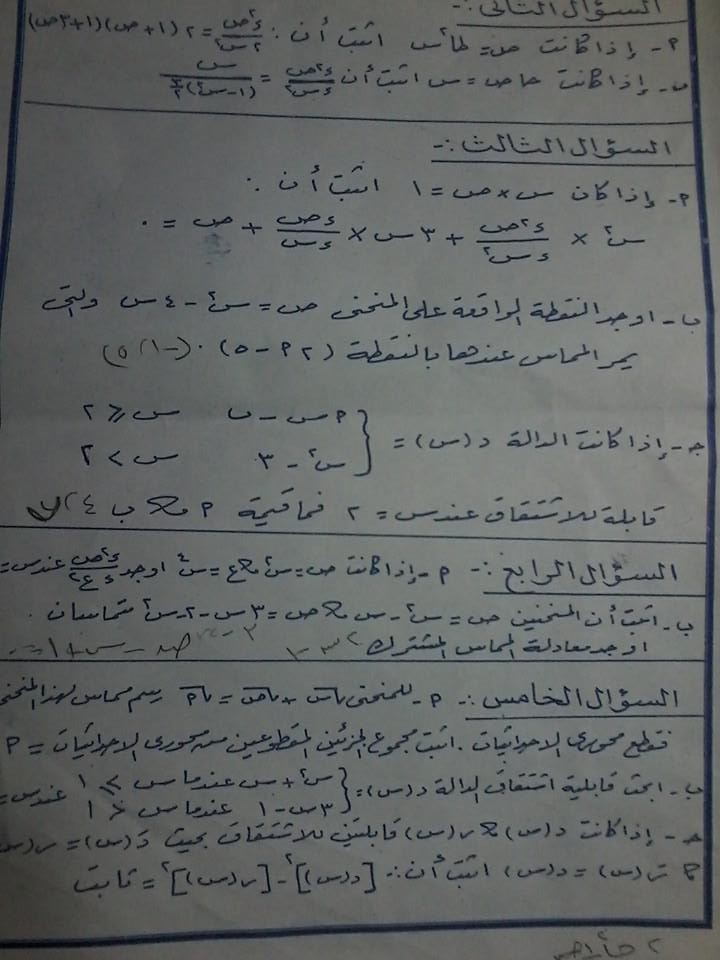 السؤال الثانى:-
٢- إذا كانت ص= طاس اثبت أن: د٢ص/دس٢ = ٢(١+ص٢)(١+٣ص٢)
ب- إذا كانت حاص = س اثبت أن د٢ص/دس٢ = س/(١-س٢)٣/٢
السؤال الثالث:-
٢- إذا كان س×ص=١ اثبت أن :
س٢ × د٢ص/دس٢ + ٣س × دص/دس + ص = ٠
ب- اوجد النقطة الواقعة على المنحنى ص=س٢-٤س والتى
يمر المماس عندها بالنقطة (٢، -٥)
ج- إذا كانت الدالة د(س) = { ٢س-ب س⩽٢
س٢-٣ س>٢
قابلة للاشتقاق عند س=٢ فما قيمة ٢، ب
السؤال الرابع:- ٢- إذا كانت ص=س٢، ع=س٤ اوجد د٢ص/دع٢ عند س=
ب- اثبت أن المنحنين ص=س٢-س، ص=٣س-٢-س٢ متماسان.
اوجد معادلة المماس المشترك
السؤال الخامس:- ٢- للمنحنى √س+√ص=√٢ رسم مماس لهذا المنحنى
فقطع محورى الاحداثيات. اثبت مجموع الجزئين المقطوعين من محورى الاحداثيات = ٢
ب- ابحث قابلية اشتقاق الدالة د(س)= { س٢+س عندما س⩾١ عند س=
٣س-١ عندما س<١
ج- إذا كانت د(س)، ر(س) قابلتين للاشتقاق بحيث دَ(س)=ر(س)
، رَ(س)=د(س) اثبت أن:- [د(س)]٢-[ر(س)]٢ = ثابت